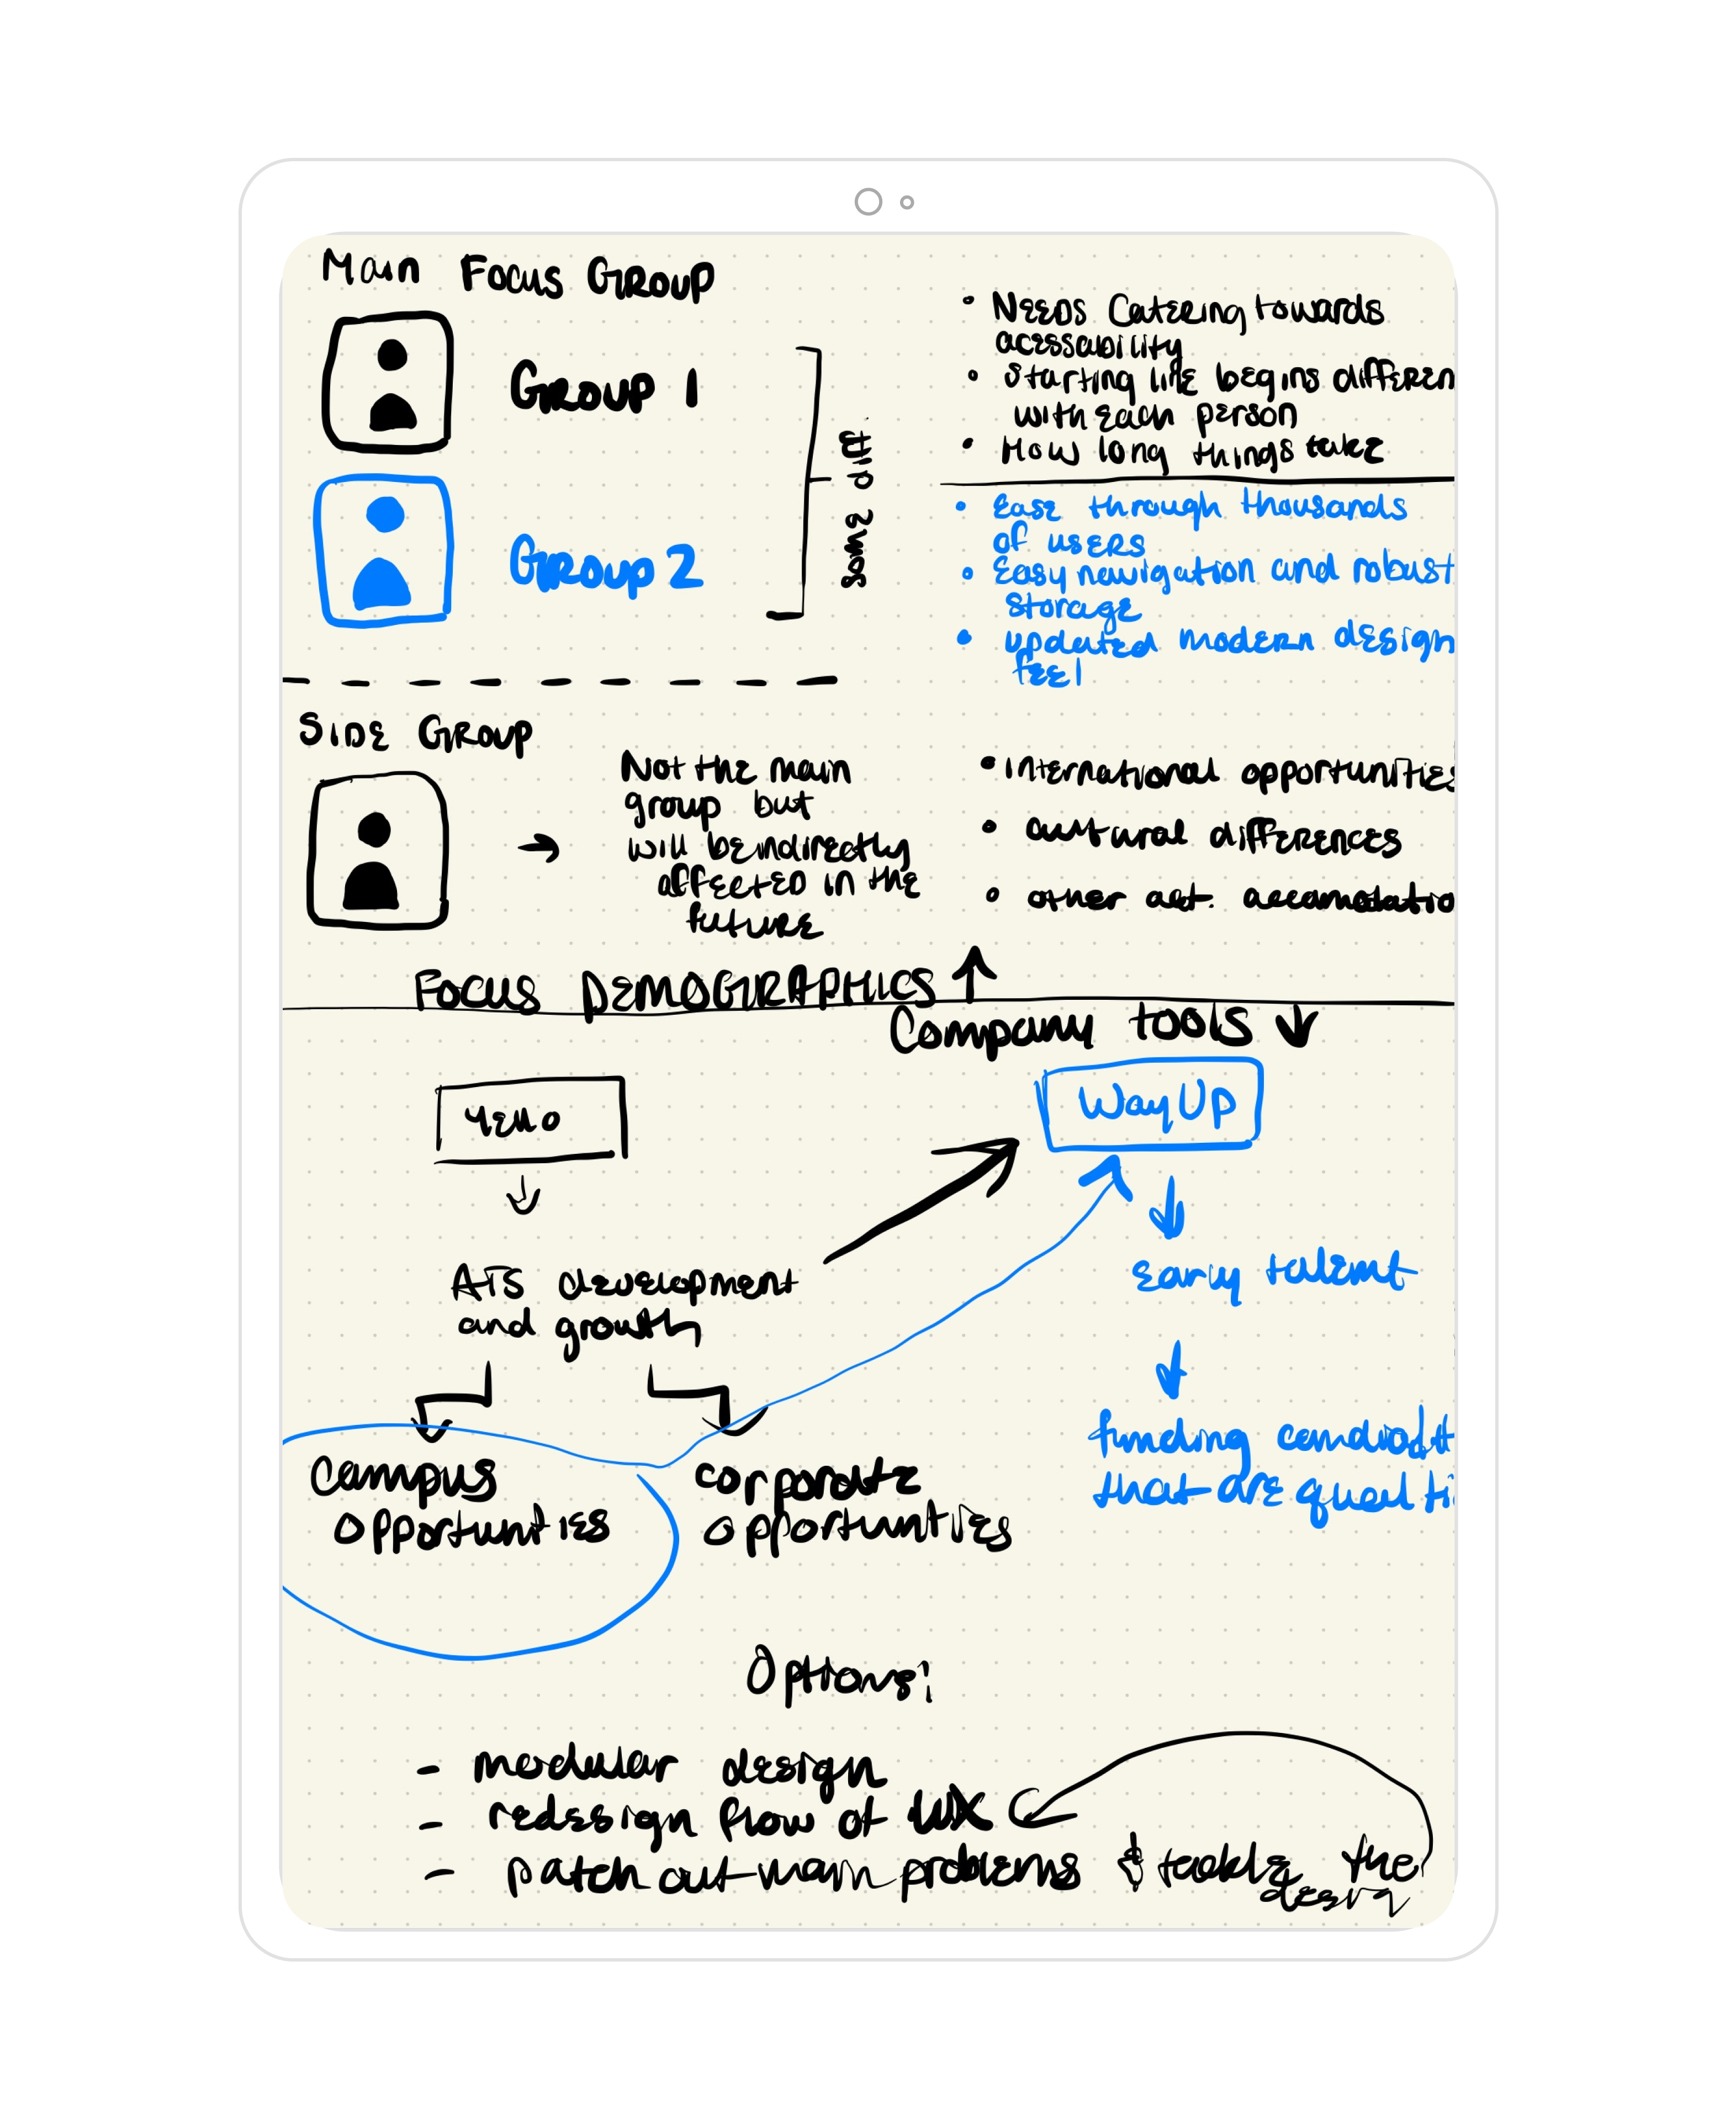 Main Focus Group
Group 1
Group 2
some diff
• Needs Catering towards
acessability
• Starting line begins differen
with each person
• How long things take
• Ease through thousands
of users
• Easy navigation and robust
storage
• updated modern design
feel
Side Group
Not the main
group but
will be indirectly
affected in the
future
• International opportunities
• cultural differences
• other
Focus Demographics
Company tools
Yello
ATS development
and growth
Campus
opportunties
corporate
opportunties
WayUp
early talent
that are
Options:
- modular design
- redesign flow of UX
- patch out main problems & tackle the
design